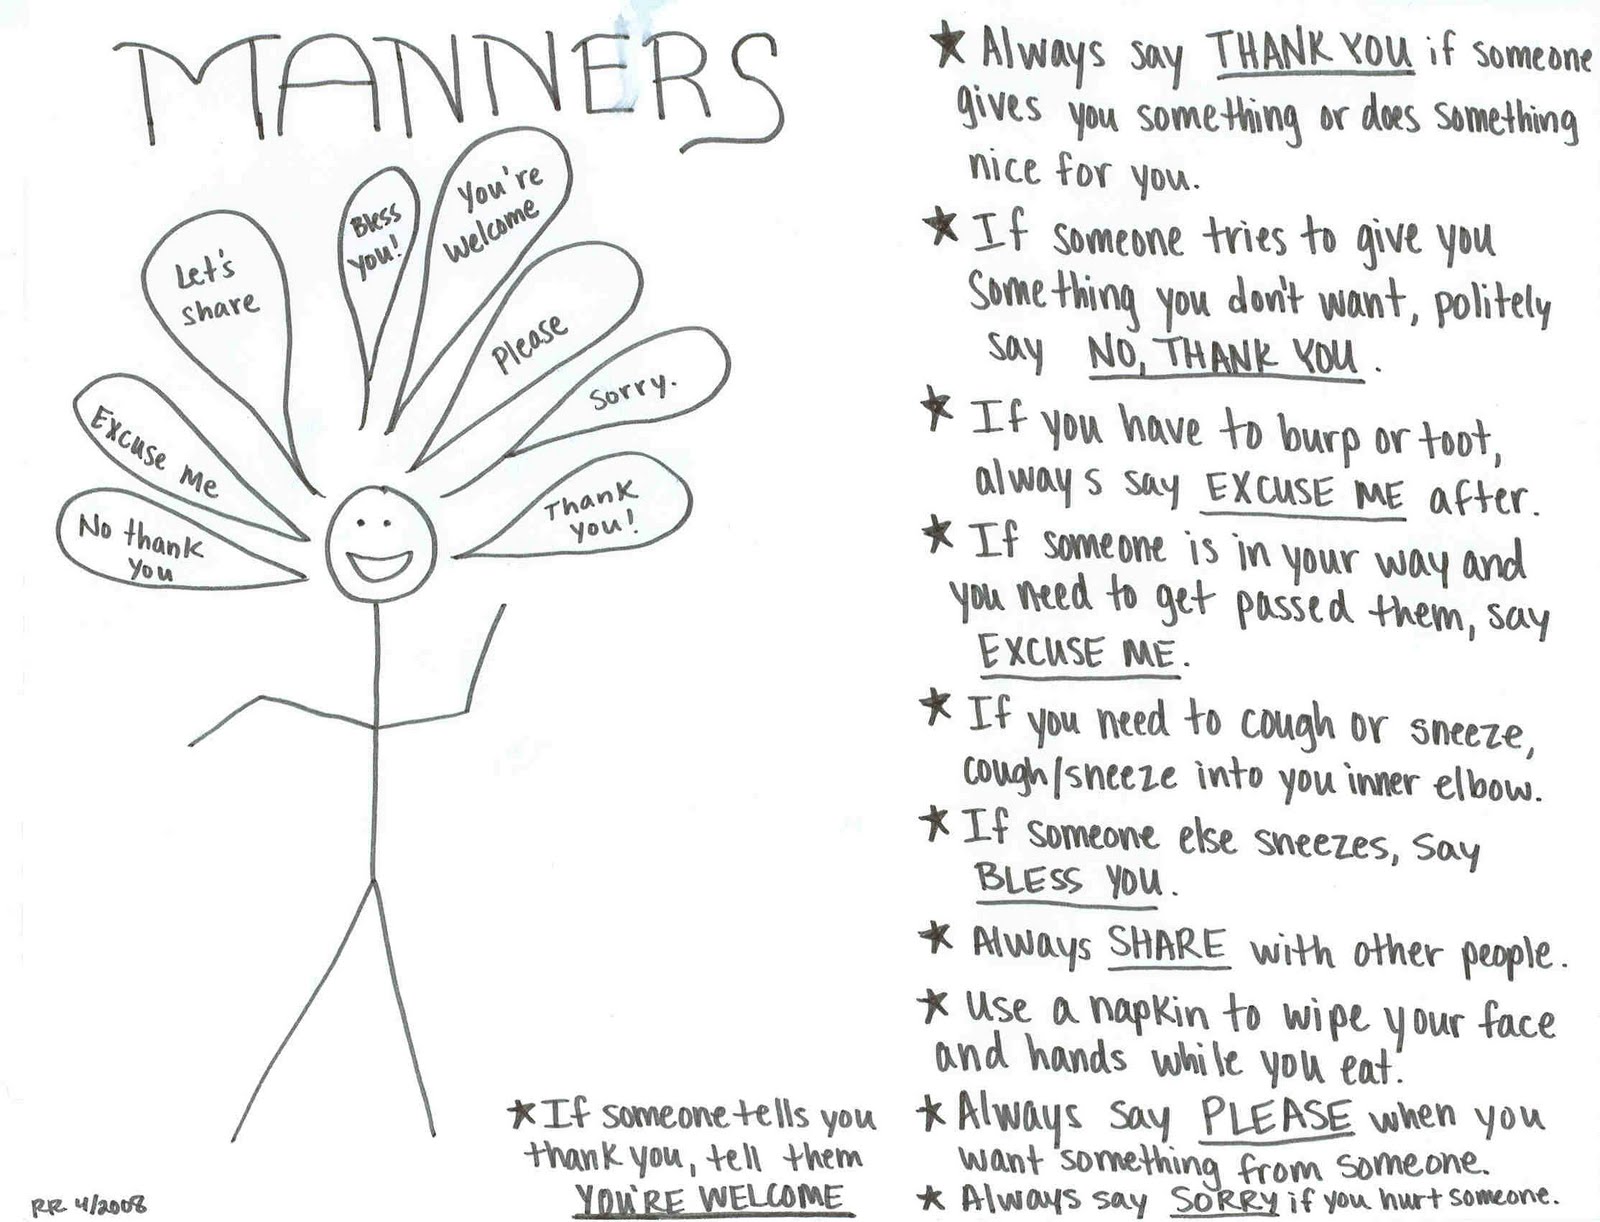 MANNERS
Let's
share
Bless
you!
You're
Welcome
Please
Sorry.
Excuse Me
No thank
you
Thank
you!
★ Always say THANK YOU if someone
gives you something or does something
nice for you.
★ If someone tries to give you
something you don't want, politely
say NO, THANK YOU.
★ If you have to burp or toot,
always say EXCUSE ME after.
★ If someone is in your way and
you need to get passed them, say
EXCUSE ME.
★ If you need to cough or sneeze,
cough/sneeze into you inner elbow.
★ If someone else sneezes, say
BLESS YOU.
★ Always SHARE with other people.
★ Use a napkin to wipe your face
and hands while you eat.
★ Always say PLEASE when you
want something from someone.
★ Always say SORRY if you hurt someone.
★ If someone tells you
thank you, tell them
YOU'RE WELCOME
RR 4/2008